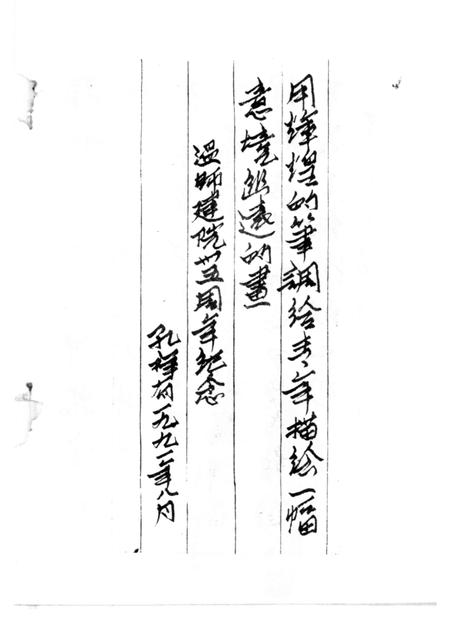 用辉煌的筆調给青年描绘一幅
意境幽遠的畫
温師建院卅五周年纪念
孔祥有一九九一年八月